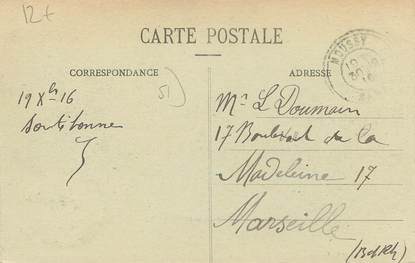 12€
CARTE POSTALE
MOUSSEY
CORRESPONDANCE
ADRESSE
19 Xbre 16
51
Mr L Doumain
17 Boulevard de la
Madeleine 17
Marseille
(B d Rh)